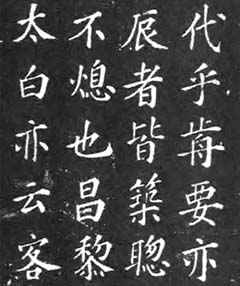 代乎要亦
辰者皆築聰
不熄也昌黎
太白亦云客